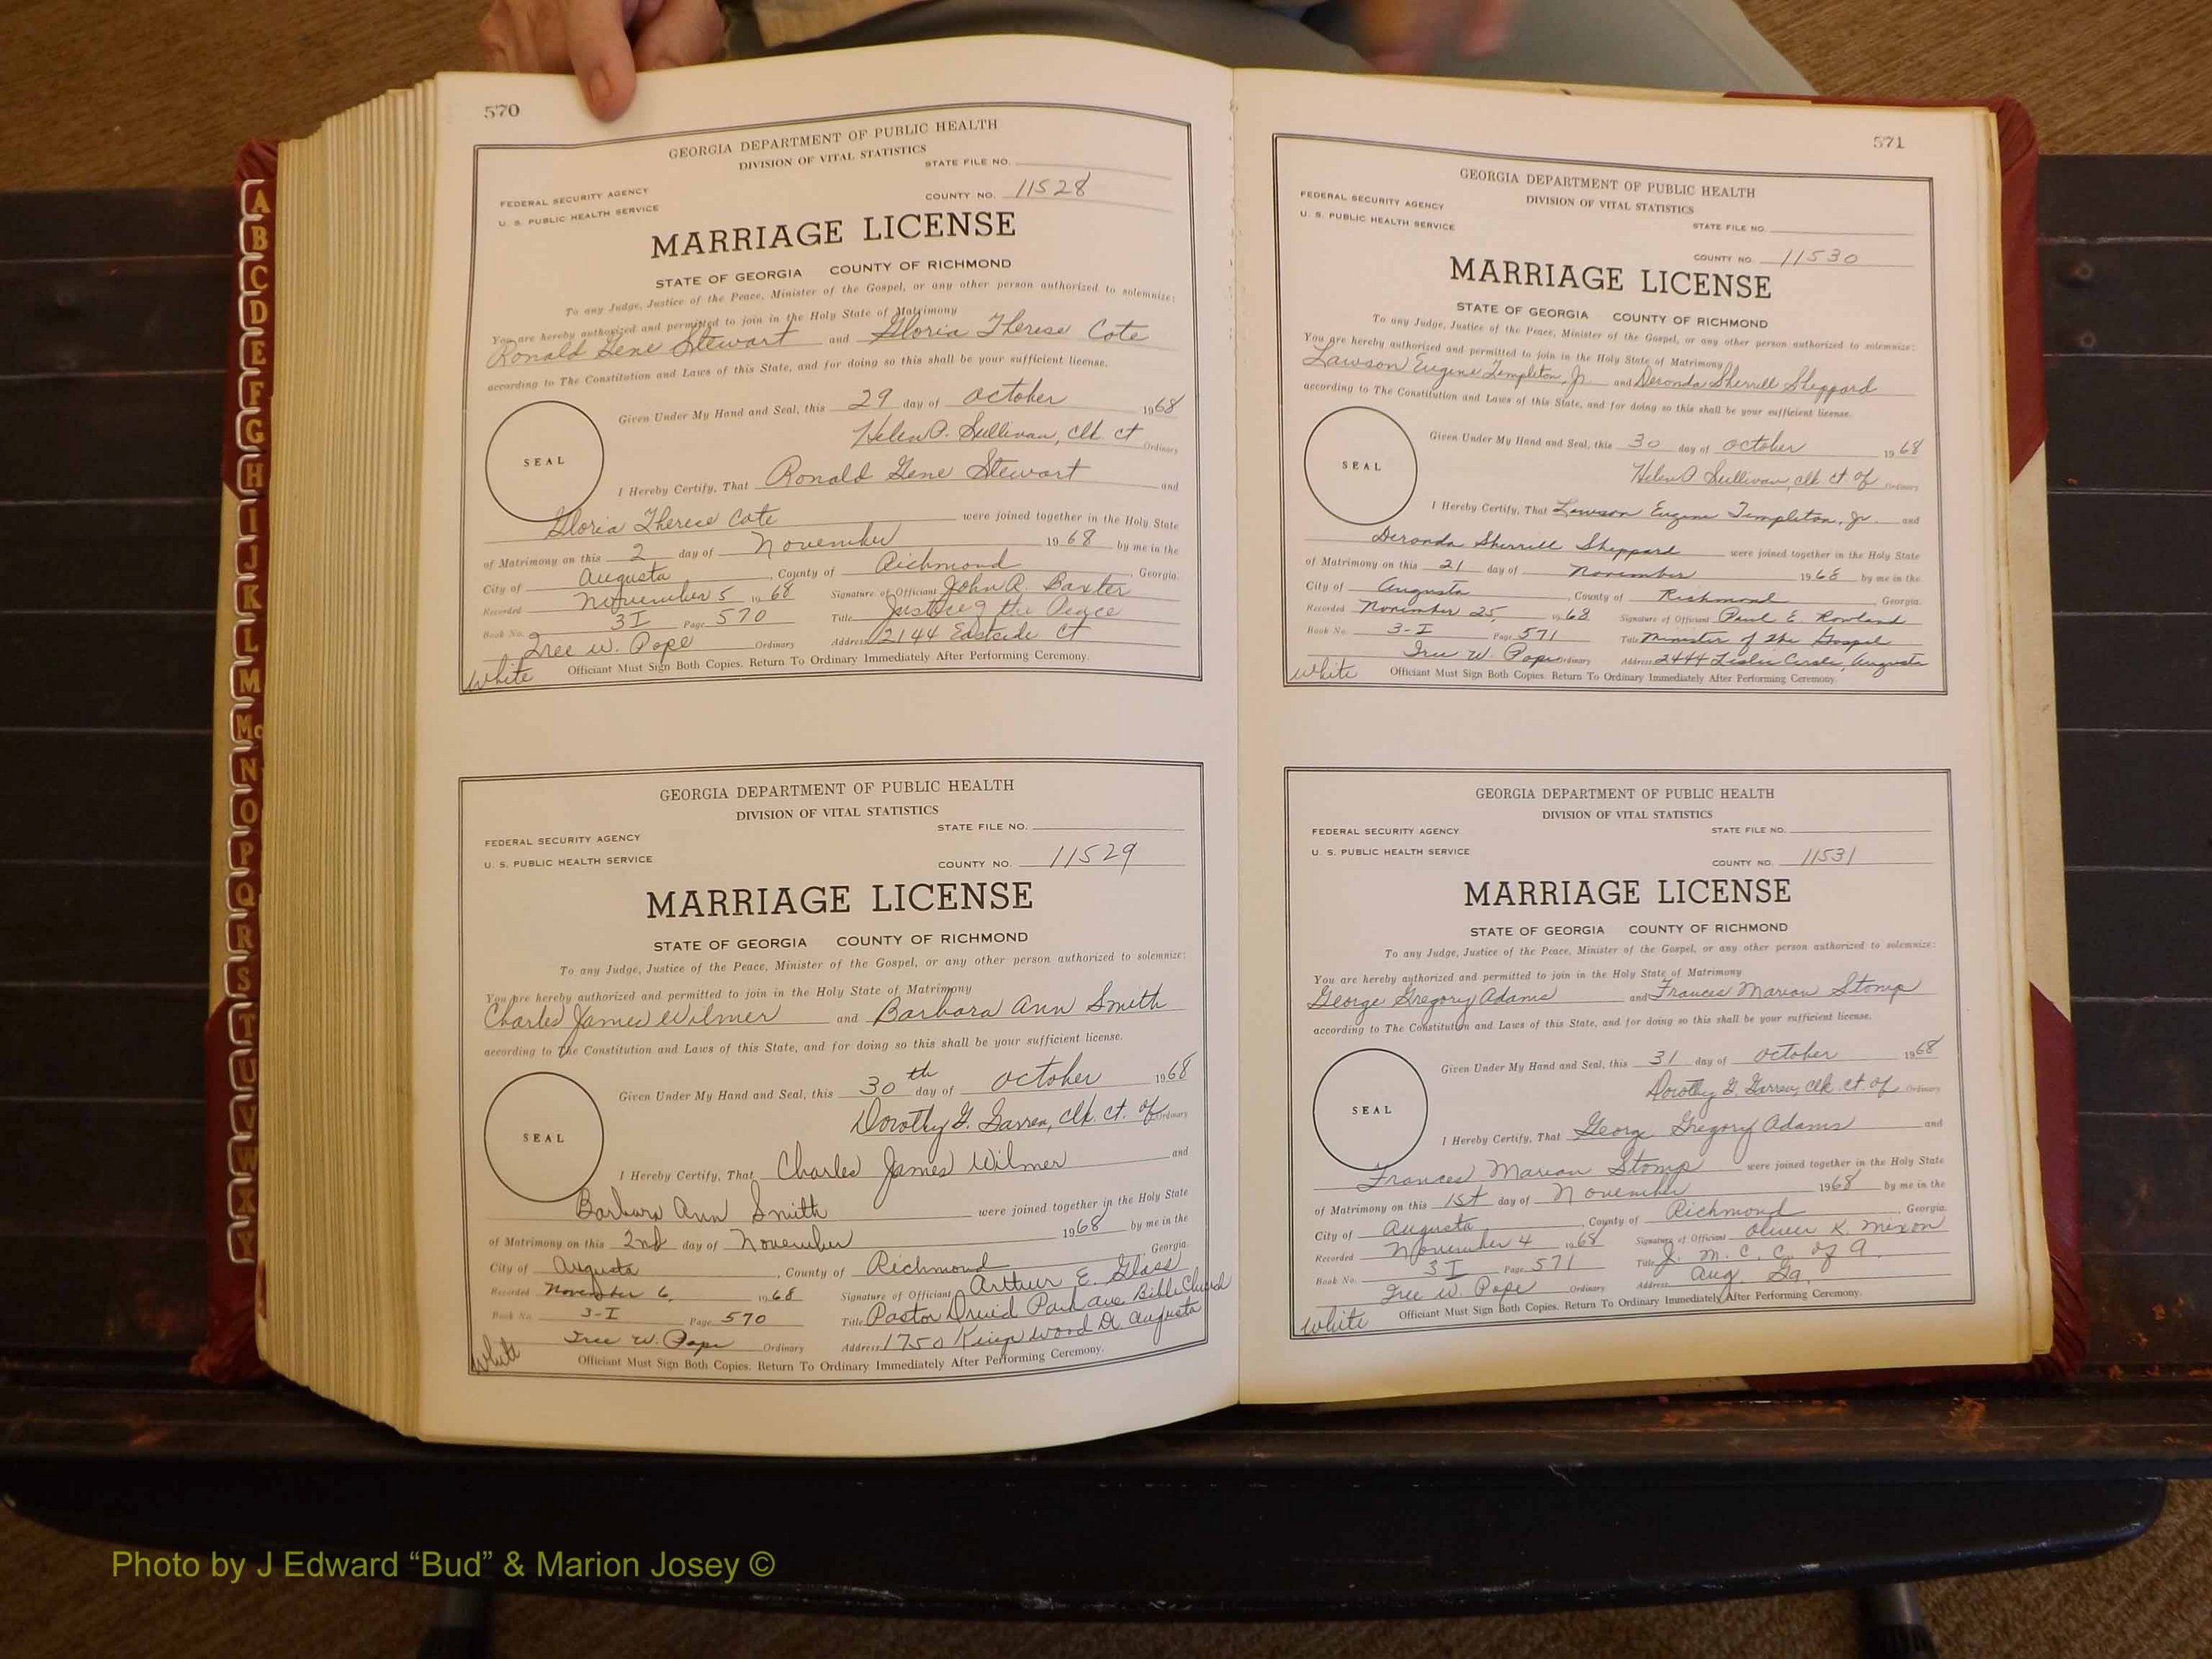 570
GEORGIA DEPARTMENT OF PUBLIC HEALTH
DIVISION OF VITAL STATISTICS
STATE FILE NO.
FEDERAL SECURITY AGENCY
U. S. PUBLIC HEALTH SERVICE
COUNTY NO. 11528
MARRIAGE LICENSE
STATE OF GEORGIA COUNTY OF RICHMOND
To any Judge, Justice of the Peace, Minister of the Gospel, or any other person authorized to solemnize:
You are hereby authorized and permitted to join in the Holy State of Matrimony
Ronald Gene Stewart and Gloria Therese Cote
according to The Constitution and Laws of this State, and for doing so this shall be your sufficient license.
Given Under My Hand and Seal, this 29 day of October 1968
Helen P. Sullivan, clk ct Ordinary
SEAL
I Hereby Certify, That Ronald Gene Stewart and
Gloria Therese Cote were joined together in the Holy State
of Matrimony on this 2 day of November 1968 by me in the
City of Augusta, County of Richmond, Georgia.
Recorded November 5 1968 Signature of Official John R. Baxter
Book No. 3I Page 570 Title Justice of the Peace
Iree W. Pope Ordinary Address 2144 Eastside Ct
White Officiant Must Sign Both Copies. Return To Ordinary Immediately After Performing Ceremony.
GEORGIA DEPARTMENT OF PUBLIC HEALTH
DIVISION OF VITAL STATISTICS
STATE FILE NO.
FEDERAL SECURITY AGENCY
U. S. PUBLIC HEALTH SERVICE
COUNTY NO. 11529
MARRIAGE LICENSE
STATE OF GEORGIA COUNTY OF RICHMOND
To any Judge, Justice of the Peace, Minister of the Gospel, or any other person authorized to solemnize:
You are hereby authorized and permitted to join in the Holy State of Matrimony
Charles James Wilmer and Barbara Ann Smith
according to The Constitution and Laws of this State, and for doing so this shall be your sufficient license.
Given Under My Hand and Seal, this 30th day of October 1968
Dorothy G. Garren, Clk. Ct. of Ordinary
SEAL
I Hereby Certify, That Charles James Wilmer and
Barbara Ann Smith were joined together in the Holy State
of Matrimony on this 2nd day of November 1968 by me in the
City of Augusta, County of Richmond Georgia.
Recorded November 6, 1968 Signature of Officiant Arthur E. Glass
Book No. 3-I Page 570 Title Pastor Druid Park Ave Bible Church
Iree W. Pope Ordinary Address 1750 Kingwood Dr. Augusta
White Officiant Must Sign Both Copies. Return To Ordinary Immediately After Performing Ceremony.
571
GEORGIA DEPARTMENT OF PUBLIC HEALTH
DIVISION OF VITAL STATISTICS
STATE FILE NO.
FEDERAL SECURITY AGENCY
U. S. PUBLIC HEALTH SERVICE
COUNTY NO. 11530
MARRIAGE LICENSE
STATE OF GEORGIA COUNTY OF RICHMOND
To any Judge, Justice of the Peace, Minister of the Gospel, or any other person authorized to solemnize:
You are hereby authorized and permitted to join in the Holy State of Matrimony
Lawson Eugene Templeton, Jr. and Deronda Sherrill Sheppard
according to The Constitution and Laws of this State, and for doing so this shall be your sufficient license.
Given Under My Hand and Seal, this 30 day of October 1968
Helen P. Sullivan, clk ct. of Ordinary
SEAL
I Hereby Certify, That Lawson Eugene Templeton, Jr. and
Deronda Sherrill Sheppard were joined together in the Holy State
of Matrimony on this 21 day of November 1968 by me in the
City of Augusta, County of Richmond, Georgia.
Recorded November 25, 1968 Signature of Officiant Paul E. Rowland
Book No. 3-I Page 571 Title Minister of the Gospel
Iree W. Pope Ordinary Address 2444 Leslie Circle, Augusta
White Officiant Must Sign Both Copies. Return To Ordinary Immediately After Performing Ceremony.
GEORGIA DEPARTMENT OF PUBLIC HEALTH
DIVISION OF VITAL STATISTICS
STATE FILE NO.
FEDERAL SECURITY AGENCY
U. S. PUBLIC HEALTH SERVICE
COUNTY NO. 11531
MARRIAGE LICENSE
STATE OF GEORGIA COUNTY OF RICHMOND
To any Judge, Justice of the Peace, Minister of the Gospel, or any other person authorized to solemnize:
You are hereby authorized and permitted to join in the Holy State of Matrimony
George Gregory Adams and Frances Marion Stomp
according to The Constitution and Laws of this State, and for doing so this shall be your sufficient license.
Given Under My Hand and Seal, this 31 day of October 1968
Dorothy G. Garren, Clk. Ct. of Ordinary
SEAL
I Hereby Certify, That George Gregory Adams and
Frances Marion Stomp were joined together in the Holy State
of Matrimony on this 1st day of November 1968 by me in the
City of Augusta, County of Richmond, Georgia.
Recorded November 4 1968 Signature of Officiant Oliver K. Mixon
Book No. 3I Page 571 Title J. M. C. C. of A.
Iree W. Pope Ordinary Address Aug. Ga.
White Officiant Must Sign Both Copies. Return To Ordinary Immediately After Performing Ceremony.
A
B
C
D
E
F
G
H
I
J
K
L
M
Mc
N
O
P
Q
R
S
T
U
V
W
X
Y
Photo by J Edward “Bud” & Marion Josey ©